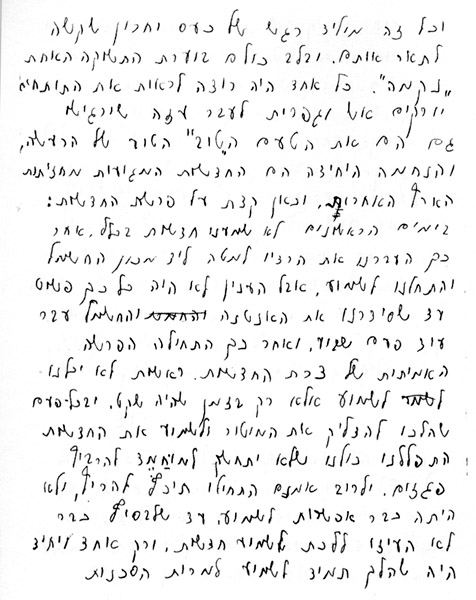 וכל זה מוליד רגש של כעס וחרון שקשה
לתאר אותם. ובלב כולם בוערת התשוקה האחת
"נקמה". כל אחד היה רוצה לראות את התותחים
יורקים אש וגפרית לעבר עזה שירגישו
גם הם את הטעם ה"טוב" הטוב של הרעשה,
והנחמה היחידה הם החדשות המגיעות מחזיתות
הארץ האחרות, וכאן קצת על פרשת החדשות:
בימים הראשונים לא שמענו חדשות בכלל. אחר
כך העברנו את הרדיו למטה ליד מכון החשמל
והתחלנו לשמוע, אבל הענין לא היה כל כך פשוט
עד שסידרנו את האנטנה והחשמל עבר
עוד פעם שבוע, ואחר כך התחילה הפרשה
האמיתית של צרת החדשות. ראשית לא יכלנו
לשמוע אלא רק בזמן שהיה שקט. ובכל-פעם
שהלכו להדליק את המוטור ולשמוע את החדשות
התפללנו כולנו שלא יתחשק למוחמד להרביץ
פגזים. ולרוב אמנם התחילו תיכף להריץ, ולא
היתה כבר אפשרות לשמוע, עד שלבסוף כבר
לא העיזו ללכת לשמוע חדשות, ורק אחד ויחיד
היה שהלך תמיד לשמוע למרות הסכנות